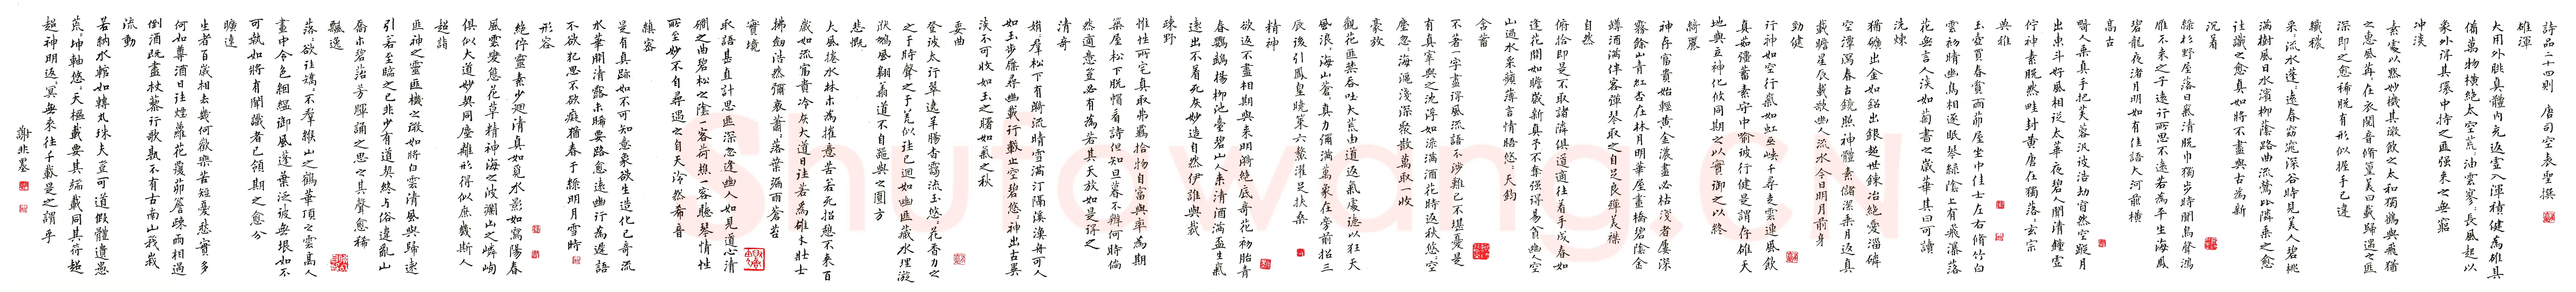 詩品二十四則 唐司空表聖撰
雄渾
大用外腓真體內充返虛入渾積健為雄具
備萬物橫絕太空荒荒油雲寥寥長風超以
象外得其環中持之匪強來之無窮
沖淡
素處以默妙機其微飲之太和獨鶴與飛猶
之惠風荏苒在衣閱音脩篁美曰載歸遇之匪
深即之愈稀脫有形似握手已違
纖穠
采采流水蓬蓬遠春窈窕深谷時見美人碧桃
滿樹風日水濱柳陰路曲流鶯比隣乘之愈
往識之愈真如將不盡與古為新
沉着
綠杉野屋落日氣清脫巾獨步時聞鳥聲鴻
雁不來之子遠行所思不遠若為平生海風
碧雲夜渚月明如有佳語大河前橫
高古
畸人乘真手把芙蓉汎彼浩劫窅然空蹤月
出東斗好風相從太華夜碧人聞清鐘虛
佇神素脫然畦封黃唐在獨落落玄宗
典雅
玉壺買春賞雨茆屋坐中佳士左右脩竹白
雲初晴幽鳥相逐眠琴綠陰上有飛瀑落
花無言人淡如菊書之歲華其曰可讀
洗煉
猶礦出金如鉛出銀超心鍊冶絕愛淄磷
空潭瀉春古鏡照神體素儲潔乘月返真
載瞻星辰載歌幽人流水今日明月前身
勁健
行神如空行氣如虹巫峽千尋走雲連風飲
真茹強蓄素守中喻彼行健是謂存雄天
地與立神化攸同期之以實御之以終
綺麗
神存富貴始輕黃金濃盡必枯淺者屢深
霧餘山青紅杏在林月明華屋畫橋碧陰金
罇酒滿伴客彈琴取之自足良殫美襟
自然
俯拾即是不取諸隣俱道適往着手成春如
逢花開如瞻歲新真予不奪強得易貧幽人空
山過水采蘋薄言情晤悠悠天鈞
含蓄
不著一字盡得風流語不涉難已不堪憂是
有真宰與之沈浮如淥滿酒花時返秋悠悠空
塵忽忽海漚淺深聚散萬取一收
豪放
觀花匪禁吞吐大荒由道返氣處得以狂天
風浪浪海山蒼蒼真力彌滿萬象在旁前招三
辰後引鳳皇曉策六鰲濯足扶桑
精神
欲返不盡相期與來明漪絕底奇花初胎青
春鸚鵡楊柳池臺碧山人來清酒滿盃生氣
遠出不着死灰妙造自然伊誰與裁
疎野
惟性所宅真取弗羈拾物自富與率為期
築屋松下脫帽看詩但知旦暮不辨何時倘
然適意豈必有為若其天放如是得之
清奇
娟娟羣松下有漪流晴雪滿汀隔溪漁舟可人
如玉步屧尋幽載行載止空碧悠悠神出古異
淡不可收如玉之曙如氣之秋
委曲
登彼太行翠遶羊腸杳靄流玉悠悠花香力之
于時聲之于羌似往已迴如幽匪藏水理漩
洑鵬風翱翔道不自器與之圓方
悲慨
大風捲水林木為摧意苦若死招憩不來百
歲如流富貴冷灰大道日往若為雄才壯士
拂劍浩然彌哀蕭蕭落葉漏雨蒼苔
實境
取語甚直計思匪深忽逢幽人如見道心清
澗之曲碧松之陰一客荷樵一客聽琴情性
所至妙不自尋遇之自天泠然希音
縝密
是有真跡如不可知意象欲生造化已奇流
水華開清露未晞要路愈遠幽行為遲語
不欲犯思不欲癡猶春于綠明月雪時
形容
絕佇靈素少迴清真如覓水影如寫陽春
風雲變態花草精神海之波瀾山之嶙峋
俱似大道妙契同塵離形得似庶幾斯人
超詣
匪神之靈匪機之微如將白雲清風與歸遠
引若至臨之已非少有道契終與俗違亂山
喬木碧苔芳暉誦之思之其聲愈稀
飄逸
落落欲往矯矯不羣緱山之鶴華頂之雲高人
畫中令色絪縕御風蓬葉泛彼無垠如不
可執如將有聞識者已領期之愈分
曠達
生者百歲相去幾何歡樂苦短憂愁實多
何如尊酒日往煙蘿花覆茆簷疎雨相過
倒酒既盡杖藜行歌孰不有古南山峩峩
流動
若納水輨如轉丸珠夫豈可道假體遺愚
荒荒坤軸悠悠天樞載要其端載同其符超
超神明返返冥無來往千載是之謂乎
謝非墨
Shufawang.CN